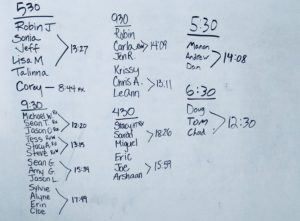 530
Robin J
Sonia
Jeff
Lisa M
Talinna
13:27
Corey - 8:44
9:30
Michael W.
Sean T. Rx
Jason O Rx
12:20
Tess
Shay
Steve
13:15
Sean G
Amy G.
Jason L
15:39
Sylvie
Alyne
Erin
Cloe
17:49
930
Robin
Carla
Jen R.
14:09
Krissy
Chris A.
LeAnn
13:11
430
Stacy
Sarah
Miguel
18:26
Eric
Joe
Arshaan
15:59
5:30
Manon
Andrew
Dan
14:08
6:30
Doug
Tom
Chad
12:30